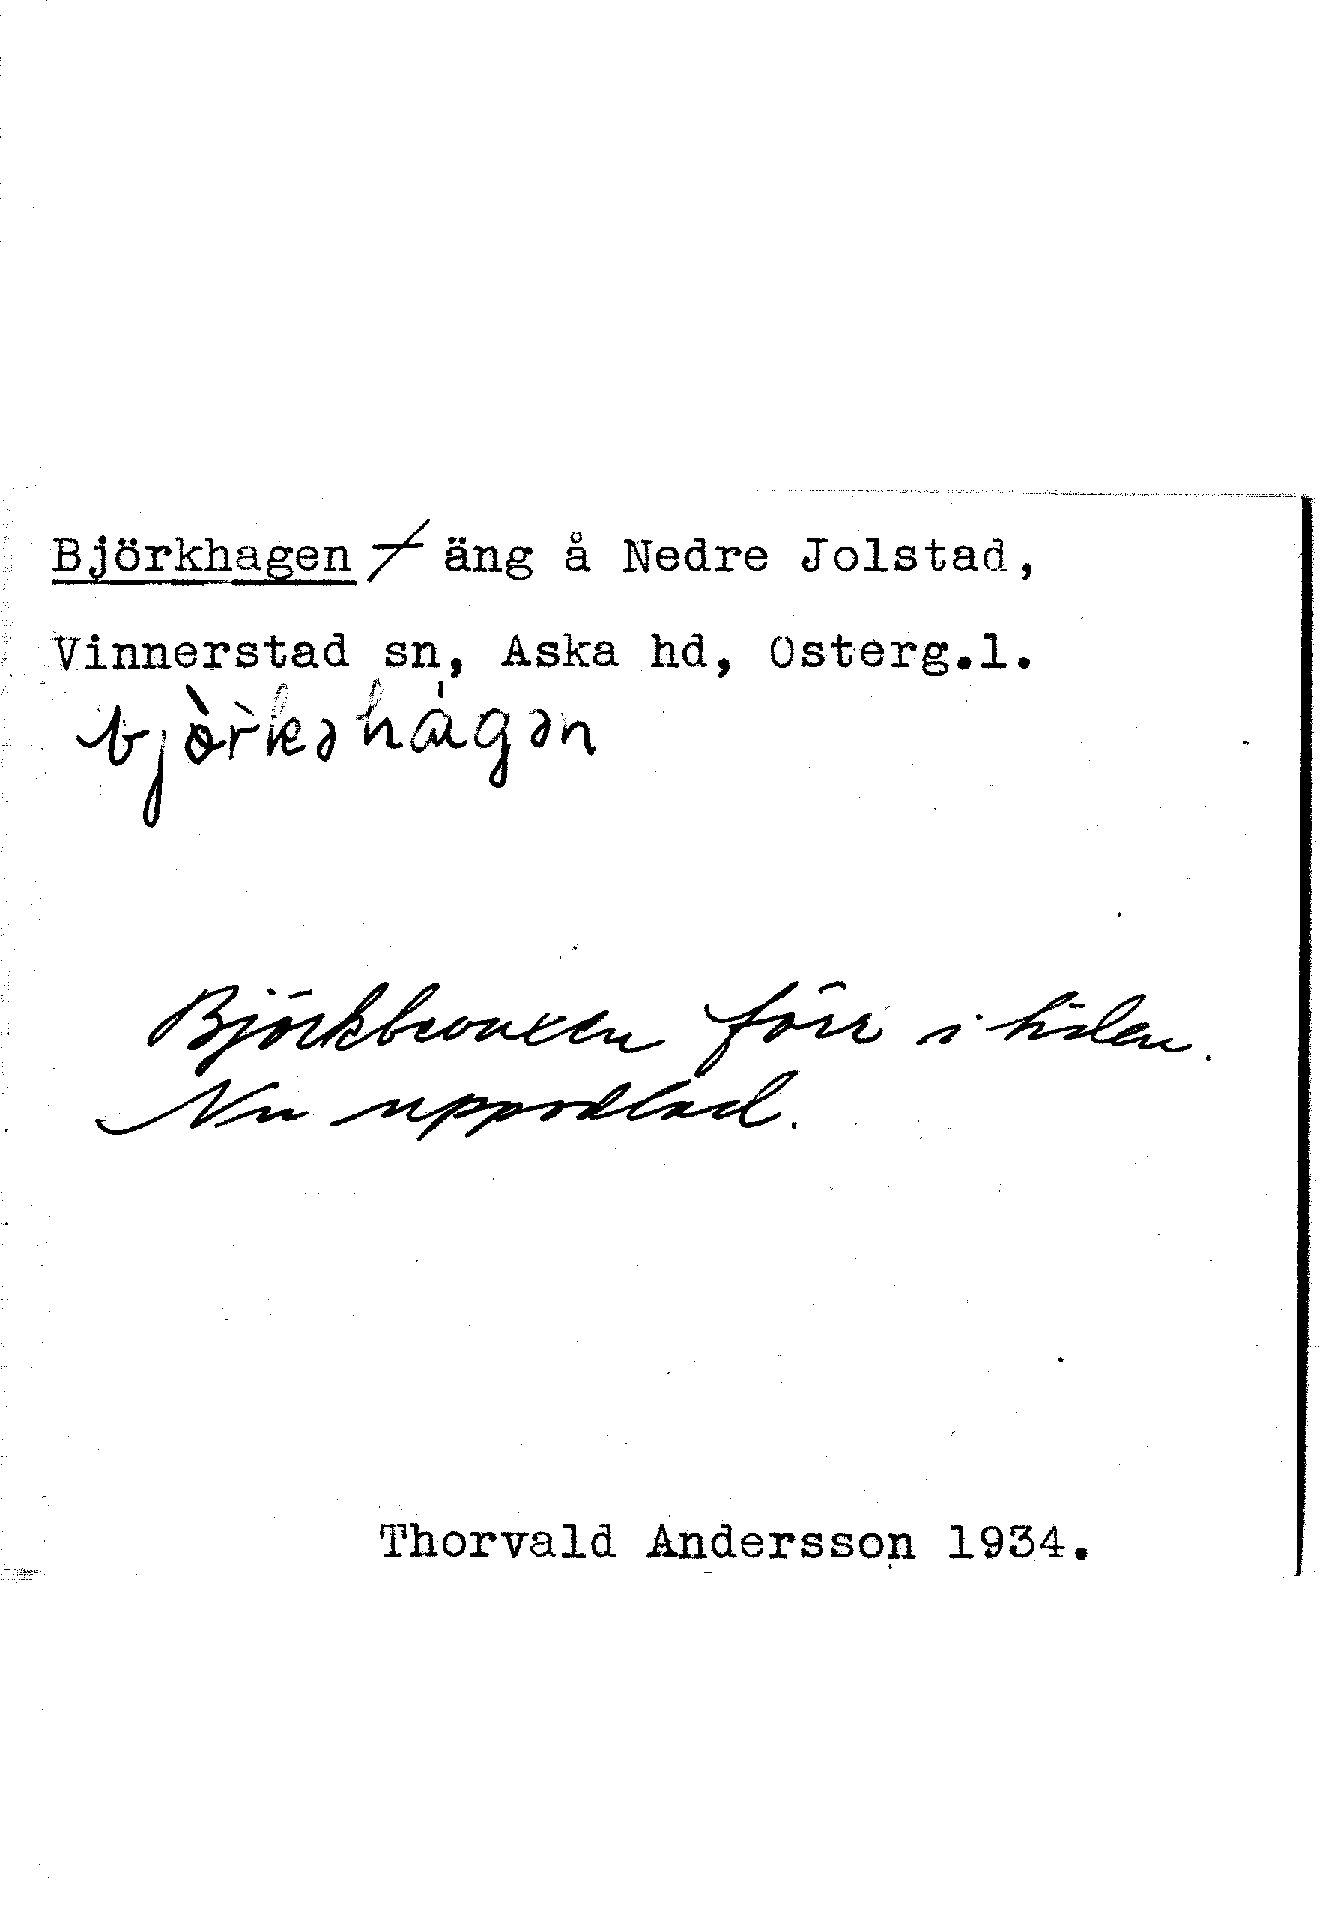 Björkhagen ⌿ äng å Nedre Jolstad,
Vinnerstad sn, Aska hd, Österg.l.
bjò̀rkəhágən
Björkbevuxen förr i tiden.
Nu uppodlad.
Thorvald Andersson 1934.